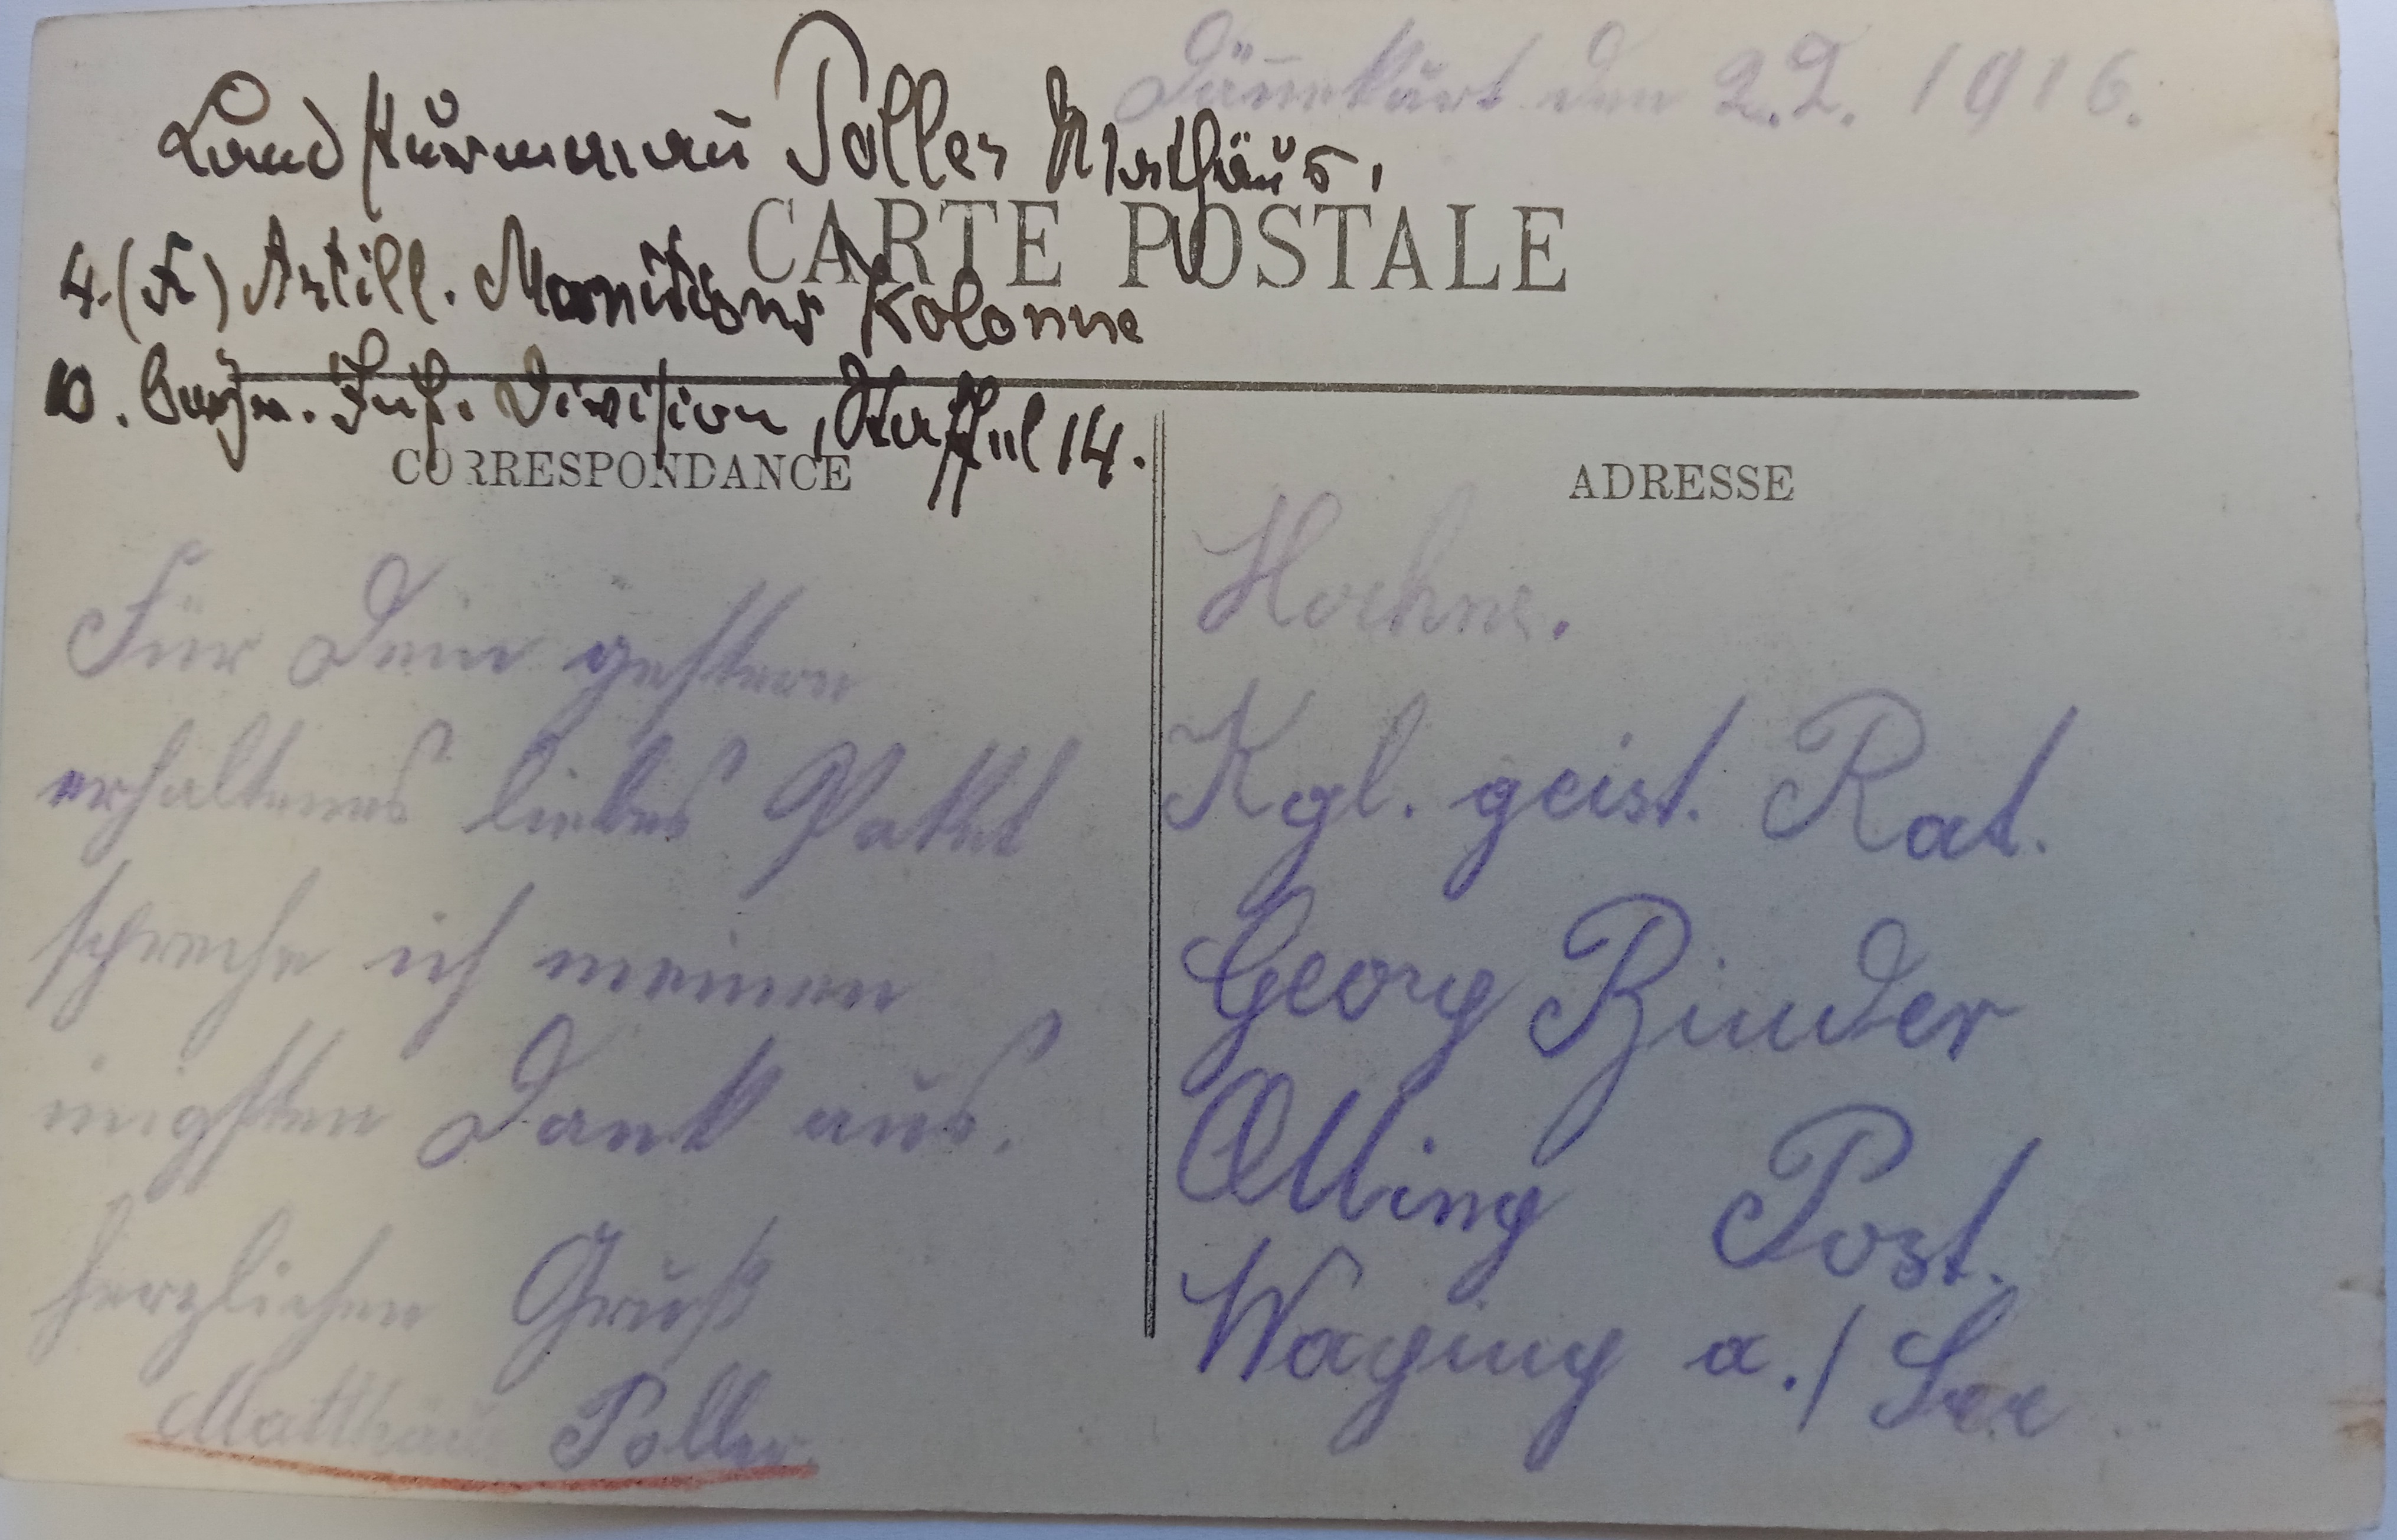 den 2.2. 1916.
Landsturmmann Poller Mathäus,
CARTE POSTALE
4. (F) Artill. Monitions Kolonne
10. bayr. Inf. Division, Staffel 14.
CORRESPONDANCE
Für Dein gestern
erhaltenes liebes Paket
spreche ich meinen
innigsten Dank aus.
herzlichen Gruß
Matthäus Poller.
ADRESSE
Hochw.
Kgl. geist. Rat.
Georg Binder
Otting Post.
Waging a./See